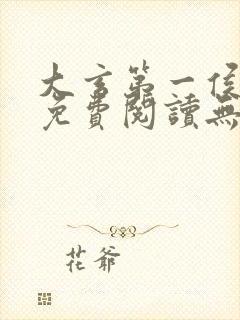 大言第一侯
免費閱讀無
花爺